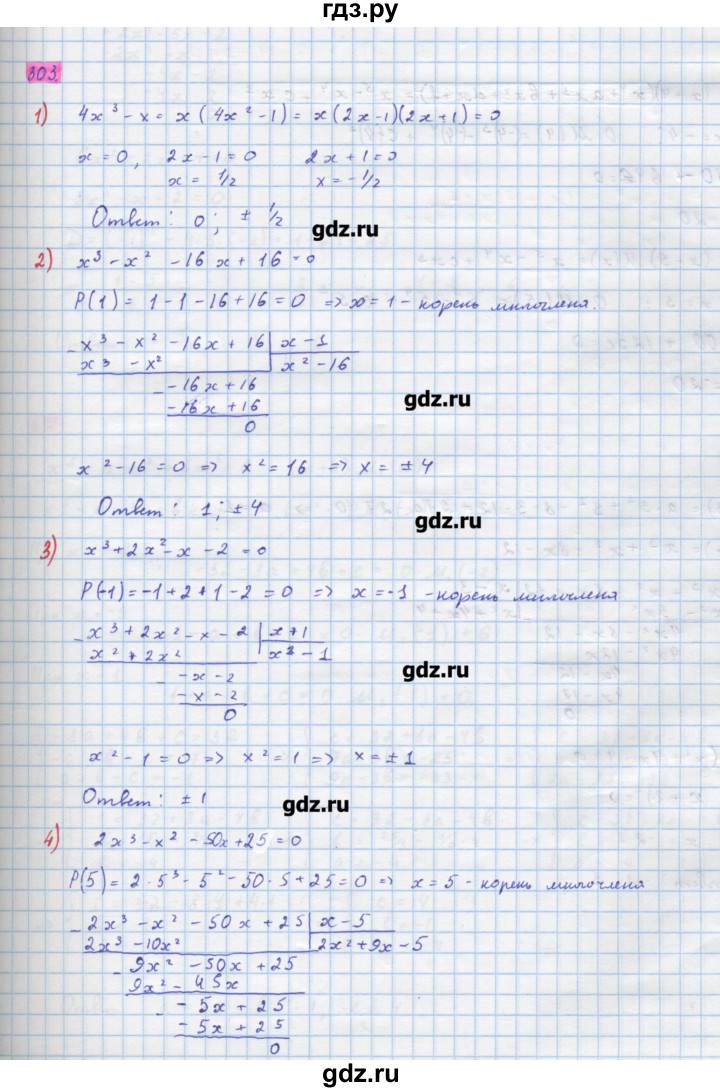 гдз.ру
303.
1) 4x³ - x = x(4x² - 1) = x(2x-1)(2x+1) = 0
x = 0, 2x - 1 = 0 2x + 1 = 0
x = 1/2 x = -1/2
Ответ: 0; ± 1/2
gdz.ru
2) x³ - x² - 16x + 16 = 0
P(1) = 1 - 1 - 16 + 16 = 0 => x = 1 - корень милочлена.
- x³ - x² - 16x + 16 | x - 1
x³ - x² x² - 16
- -16x + 16
-16x + 16
gdz.ru
0
x² - 16 = 0 => x² = 16 => x = ± 4
Ответ: 1; ± 4
gdz.ru
3) x³ + 2x² - x - 2 = 0
P(-1) = -1 + 2 + 1 - 2 = 0 => x = -1 - корень милочлена
- x³ + 2x² - x - 2 | x + 1
x² + 2x² x² - 1
- -x - 2
-x - 2
gdz.ru
0
x² - 1 = 0 => x² = 1 => x = ± 1
Ответ: ± 1
gdz.ru
4) 2x³ - x² - 50x + 25 = 0
P(5) = 2·5³ - 5² - 50·5 + 25 = 0 => x = 5 - корень милочлена
- 2x³ - x² - 50x + 25 | x - 5
2x³ - 10x² 2x² + 9x - 5
- 9x² - 50x + 25
9x² - 45x
- -5x + 25
-5x + 25
0